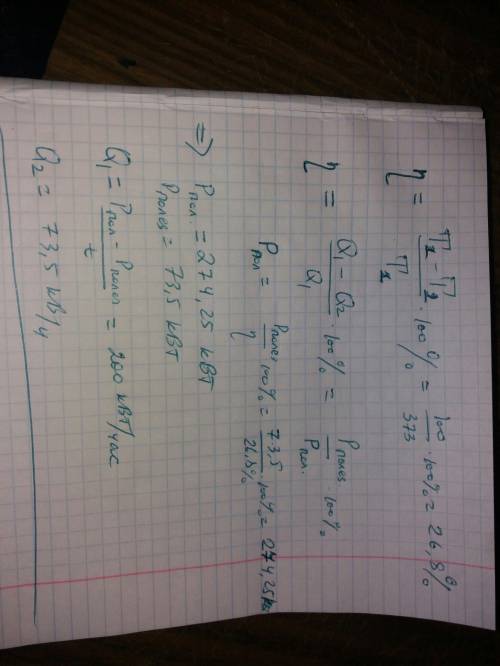 η = T₁ - T₂ / T₁ · 100% = 100 / 373 · 100% = 26,8%
η = Q₁ - Q₂ / Q₁ · 100% = Pполез / Pпол. · 100%
Pпол = Pполез / η · 100% = 73,5 / 26,8% · 100% = 274,25 кв
=> Pпол. = 274,25 кВт
Pполез = 73,5 кВт
Q₁ = Pпол - Pполез / t = 200 кВт/час
Q₂ = 73,5 кВ/ч